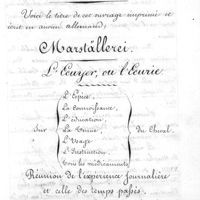 Voici le titre de cet ouvrage imprimé et
écrit en ancien allemand;
Marställerei.
L'Ecuyer, ou l'Ecurie
L'Espèce,
La Connoissance,
L'éducation,
Sur La Tenue, du Cheval.
L'Usage
L'Instruction,
Tous les médicaments
Réunion de l'expérience journalière
et celle des temps passés.